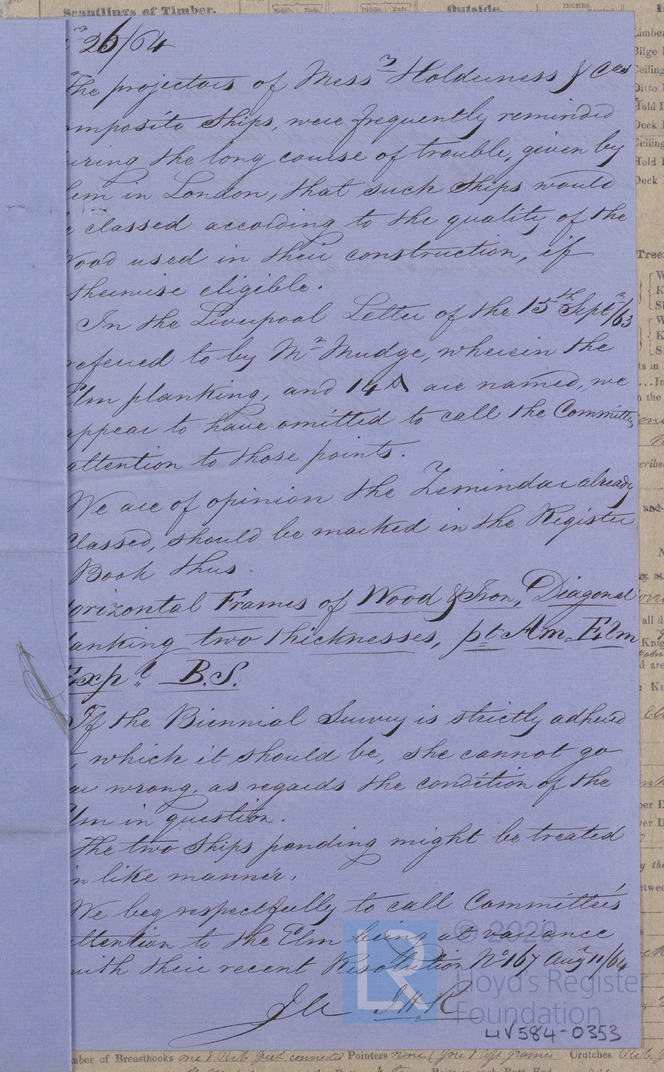 Scantlings of Timber. Outside.
26/64
The projectors of Messrs Holderness & Cos
omposite Ships, were frequently reminded
uring the long course of trouble, given by
hem in London, that such Ships would
e classed according to the quality of the
Wood used in their construction, if
therwise eligible.
In the Liverpool Letter of the 15th Septr/63
referred to by Mr Mudge, wherein the
Elm planking, and 14 A are named, we
appear to have omitted to call the Committees
attention to those points.
We are of opinion the Zemindar already
Classed, should be marked in the Register
Book thus.
orizontal Frames of Wood & Iron, Diagonal
lanking two thicknesses, pt Am. Elm
Expl B.S.
If the Biennial Survey is strictly adhered
which it should be, she cannot go
ar wrong, as regards the condition of the
Elm in question.
The two Ships pending might be treated
in like manner.
We beg respectfully to call Committee's
attention to the Elm being at variance
with their recent Resolution No 167 Augt 11/64
JHR
© 2020
Lloyd's Register
Foundation
LR
LIV584-0353
mber of Breasthooks Pointers none Crutches